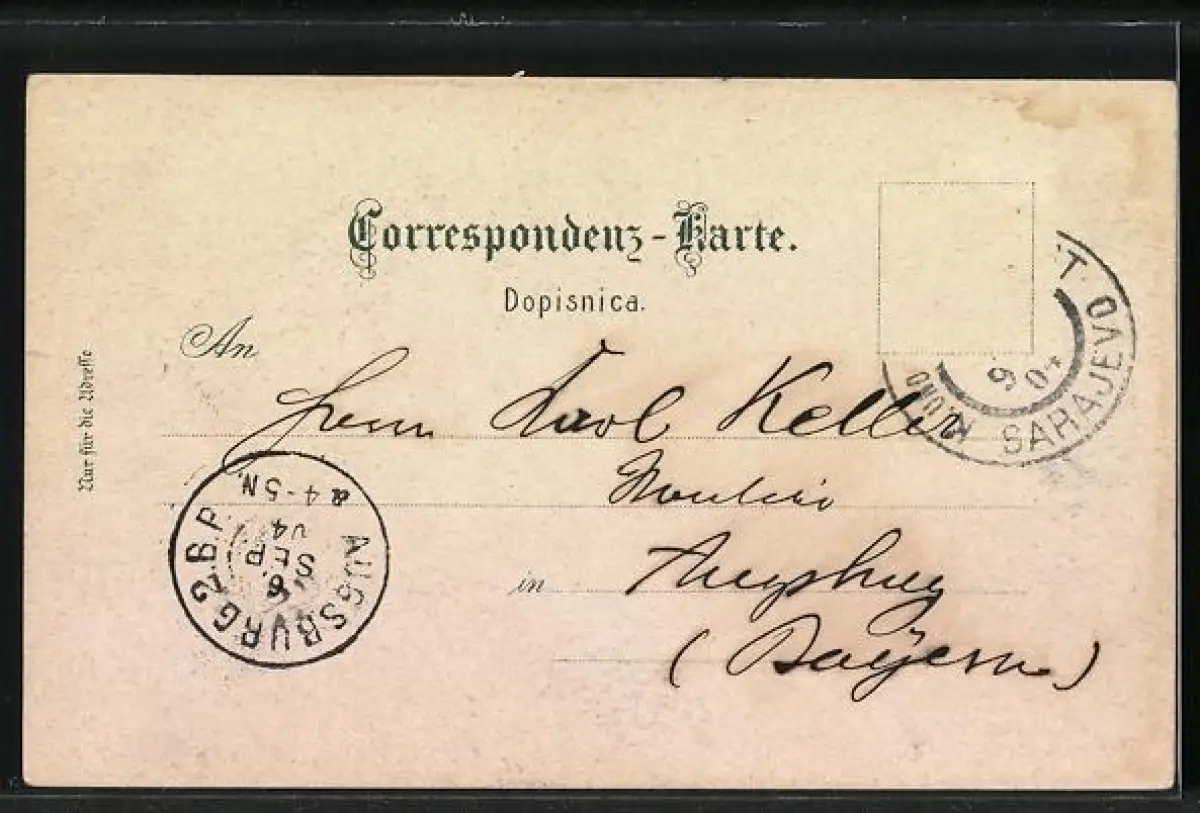 Correspondenz-Karte.
Dopisnica.
An
Herrn Karl Keller
in Augsburg
(Bayern)
Nur für die Adresse
AUGSBURG 2.B.P.
6
SEP.
04
4-5 N.
SARAJEVO
9
04